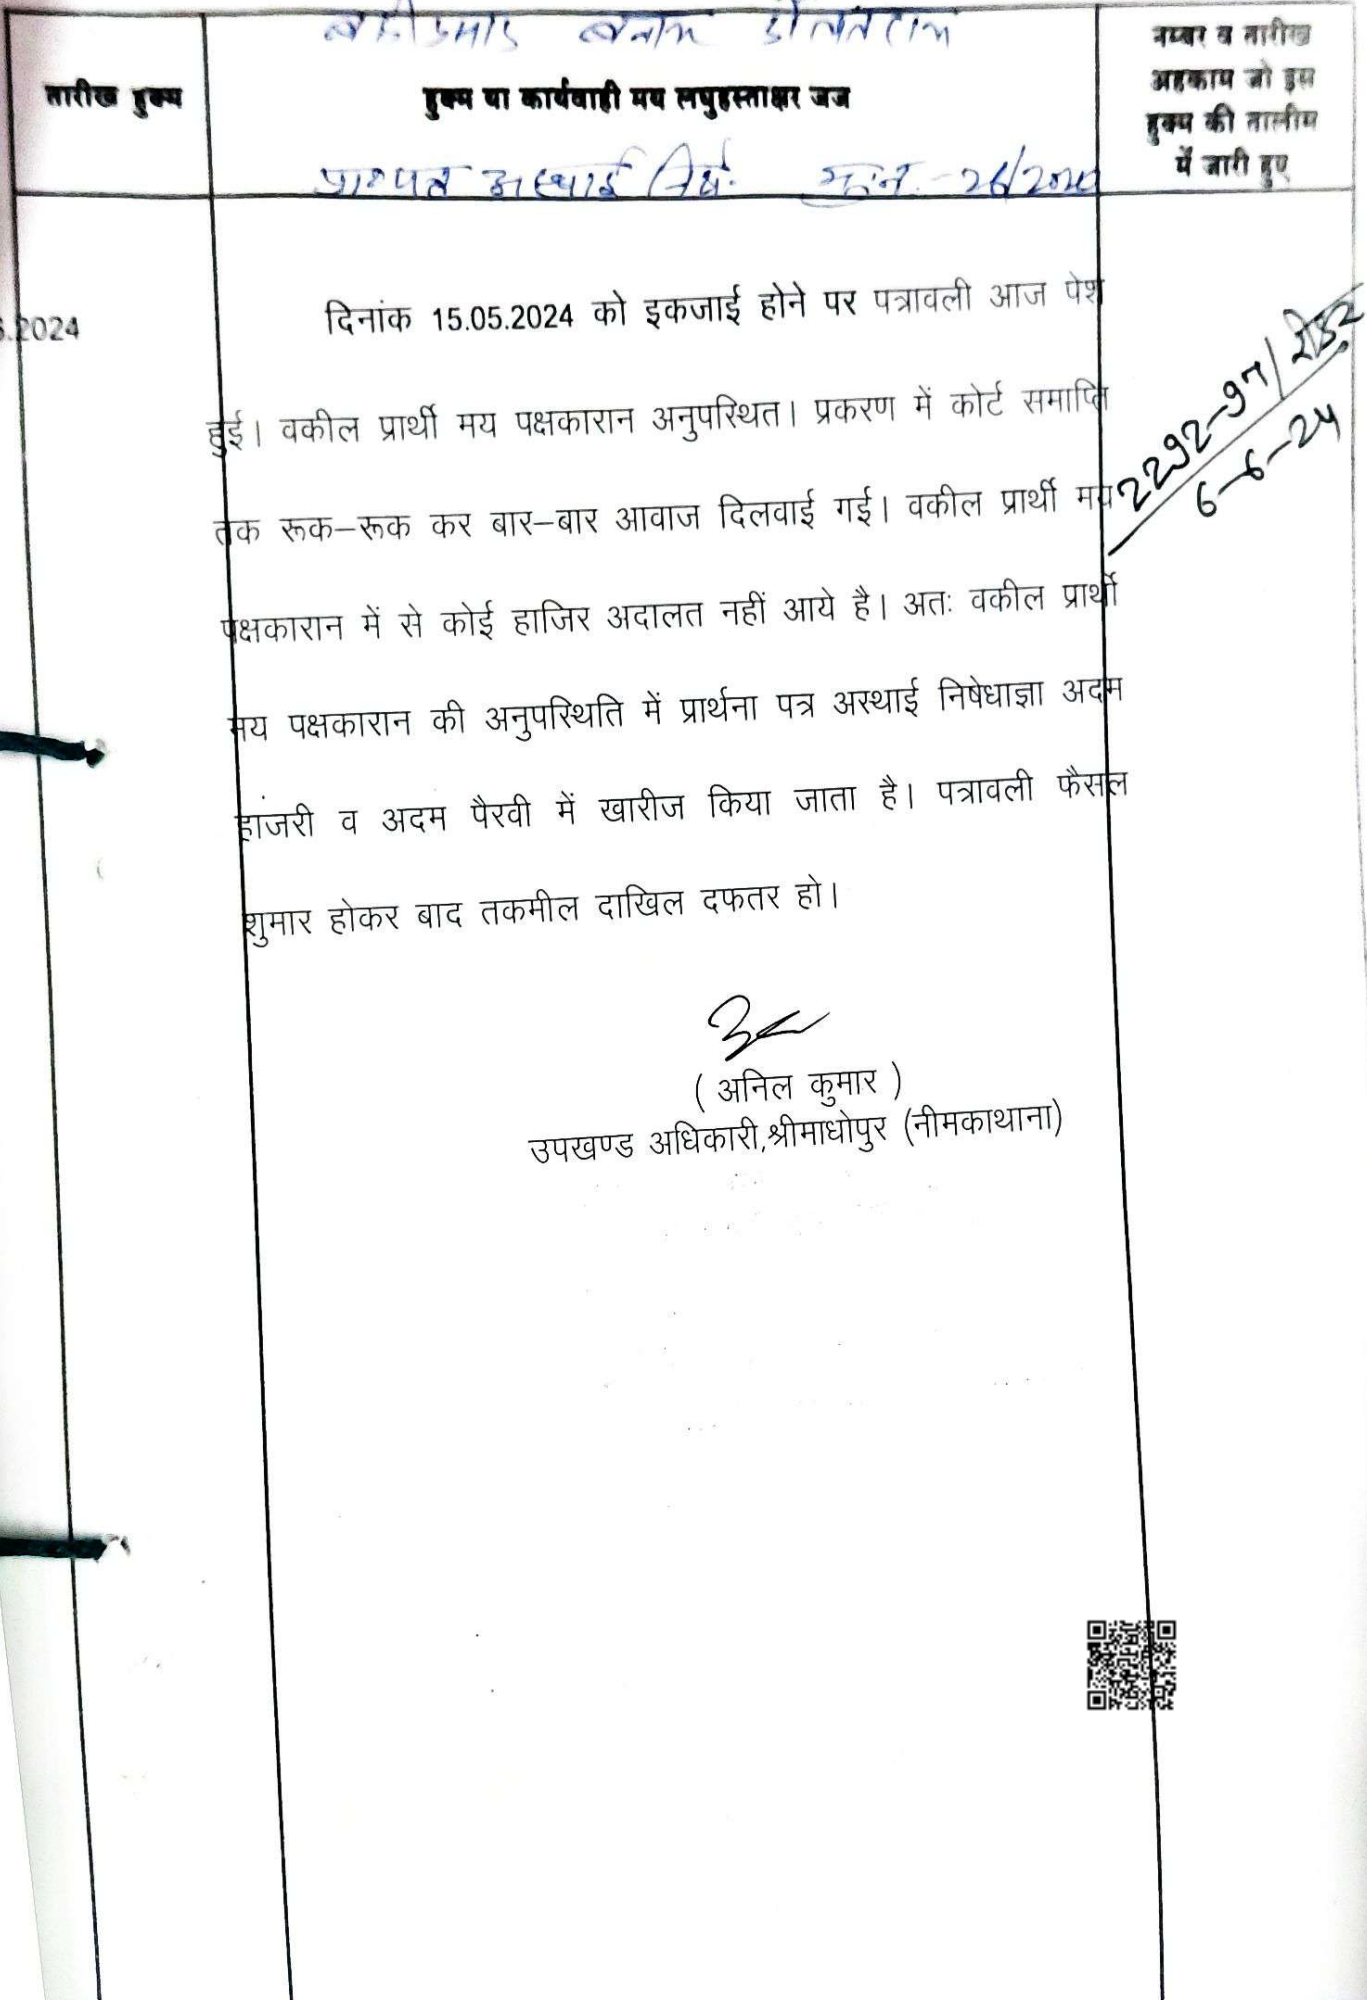 बनाम
तारीख हुक्म
हुक्म या कार्यवाही मय लघुहस्ताक्षर जज
नम्बर व तारीख
अहकाम जो इस
हुक्म की तालीम
में जारी हुए
अस्थाई 26/2020
.2024
दिनांक 15.05.2024 को इकजाई होने पर पत्रावली आज पेश
हुई। वकील प्रार्थी मय पक्षकारान अनुपस्थित। प्रकरण में कोर्ट समाप्ति
तक रूक–रूक कर बार–बार आवाज दिलवाई गई। वकील प्रार्थी मय
पक्षकारान में से कोई हाजिर अदालत नहीं आये है। अतः वकील प्रार्थी
मय पक्षकारान की अनुपस्थिति में प्रार्थना पत्र अस्थाई निषेधाज्ञा अदम
हांजरी व अदम पैरवी में खारीज किया जाता है। पत्रावली फैसल
शुमार होकर बाद तकमील दाखिल दफतर हो।
2292-97/रीडर
6-6-24
( अनिल कुमार )
उपखण्ड अधिकारी,श्रीमाधोपुर (नीमकाथाना)